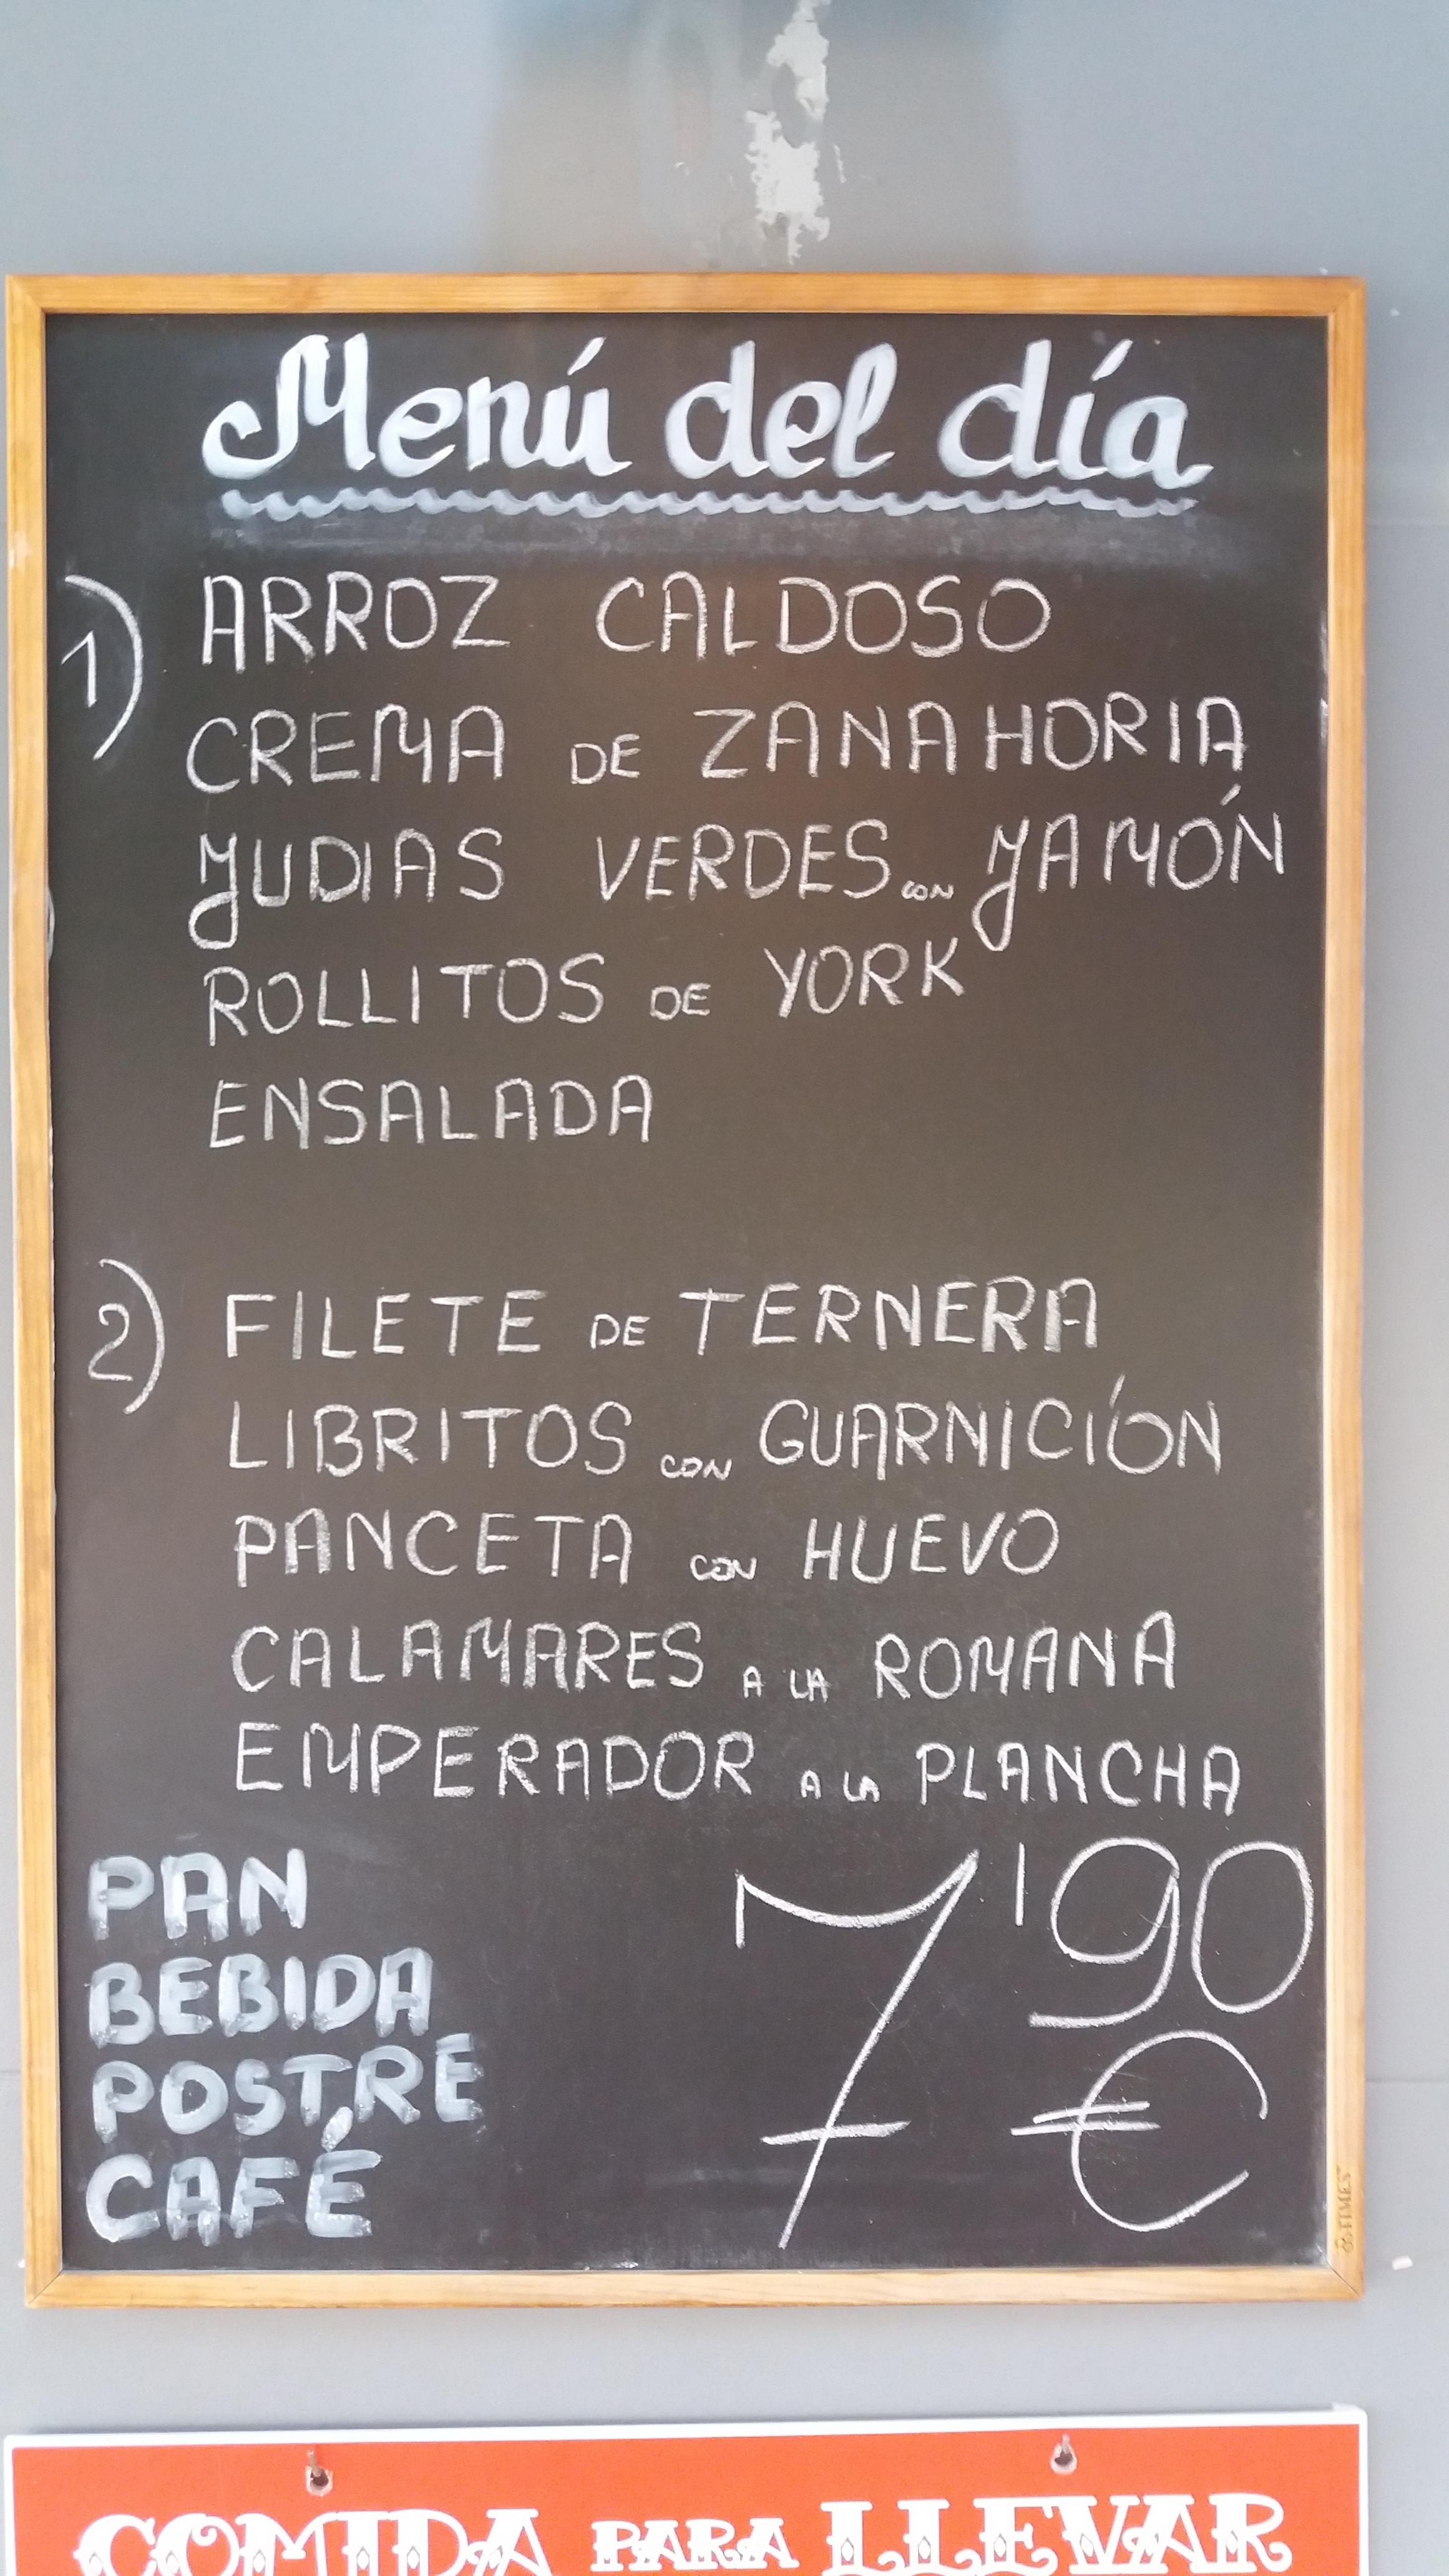 Menú del día
1) ARROZ CALDOSO
CREMA DE ZANAHORIA
JUDIAS VERDES CON JAMÓN
ROLLITOS DE YORK
ENSALADA
2) FILETE DE TERNERA
LIBRITOS CON GUARNICIÓN
PANCETA CON HUEVO
CALAMARES A LA ROMANA
EMPERADOR A LA PLANCHA
PAN
BEBIDA
POSTRE
CAFÉ
7'90
€
COMIDA PARA LLEVAR